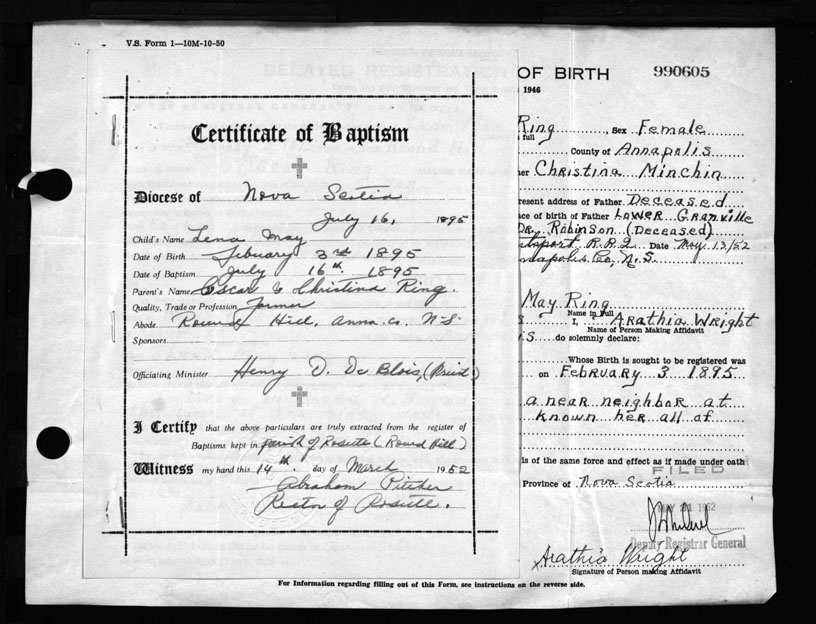 V.S. Form 1—10M-10-50
DELAYED REGISTRATION OF BIRTH 990605
1946
Certificate of Baptism
Diocese of Nova Scotia
July 16, 1895
Child's Name Lena May
Date of Birth Febuary 3rd 1895
Date of Baptism July 16th 1895
Parent's Name Oscar & Christina Ring.
Quality, Trade or Profession Farmer
Abode Round Hill, Anna. Co. N-S.
Sponsors
Officiating Minister Henry D. De Blois, (Priest)
I Certify that the above particulars are truly extracted from the register of
Baptisms kept in parish of Rosette (Round Hill)
Witness my hand this 14th. day of March 1952
Abraham
Rector of Rosette.
Ring, Sex Female
full
County of Annapolis
er Christina Minchin
resent address of Father Deceased
ace of birth of Father Lower Granville
Dr. Robinson (Deceased)
R.R.2 Date May 13/52
napolis Co, N.S.
May Ring
Name in Full
I, Arathia Wright
Name of Person Making Affidavit
do solemnly declare:
Whose Birth is sought to be registered was
on February 3 1895
a near neighbor at
known her all of
is of the same force and effect as if made under oath
FILED
Province of Nova Scotia
MAY 21 1952
Deputy Registrar General
Arathia Wright
Signature of Person making Affidavit
For Information regarding filling out of this Form, see instructions on the reverse side.